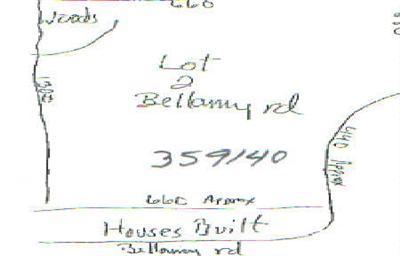 660
Woods
Lot
2
Bellamy rd
359140
660 Approx
440 Approx
Houses Built
Bellamy rd